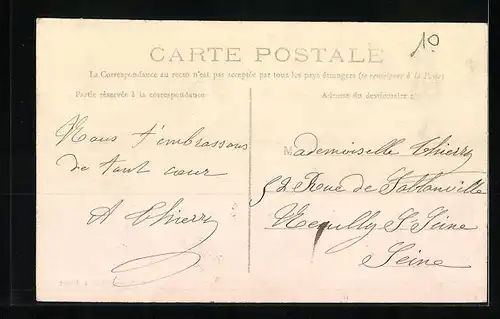 10
CARTE POSTALE
La Correspondance au recto n'est pas acceptée par tous les pays étrangers (se renseigner à la Poste)
Partie réservée à la correspondance
Adresse du destinataire :
Nous t'embrassons
de tout cœur
A Thierry
Mademoiselle Thierry
52 Rue de Sablonville
Neuilly S- Seine
Seine